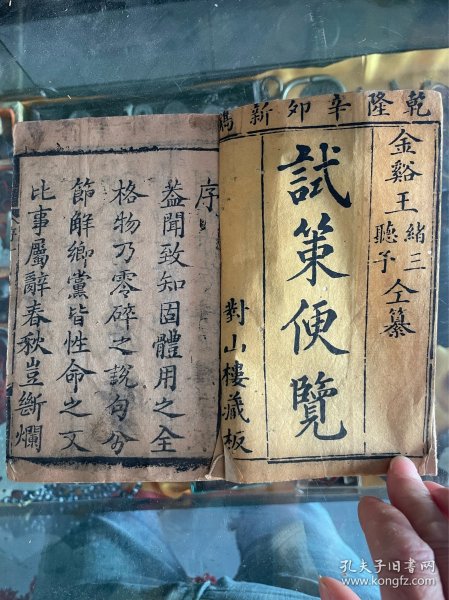 乾隆辛卯新鐫
金谿王緒三聽予仝纂
試策便覽
對山樓藏板
序
蓋聞致知固體用之全
格物乃零碎之說句分
節解鄉黨皆性命之文
比事屬辭春秋豈斷爛
孔夫子旧书网
www.kongfz.com